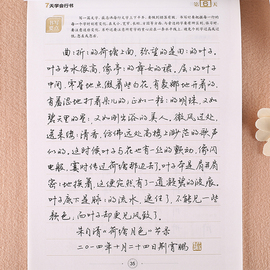 7天学会行书
第6天
曲曲折折的荷塘上面，弥望的是田田的叶子。
叶子出水很高，像亭亭的舞女的裙。层层的叶子
中间，零星地点缀着些白花，有袅娜地开着的，
有羞涩地打着朵儿的；正如一粒粒的明珠，又如
碧天里的星星，又如刚出浴的美人。微风过处，
送来缕缕清香，仿佛远处高楼上渺茫的歌声
似的。这时候叶子与花也有一丝的颤动，像闪
电般，霎时传过荷塘那边去了。叶子本是肩并肩
密密地挨着，这便宛然有了一道凝碧的波痕。
叶子底下是脉脉的流水，遮住了，不能见一些
颜色；而叶子却更见风致了。
朱自清《荷塘月色》节录
二〇一四年十月二十四日荆霄鹏
35